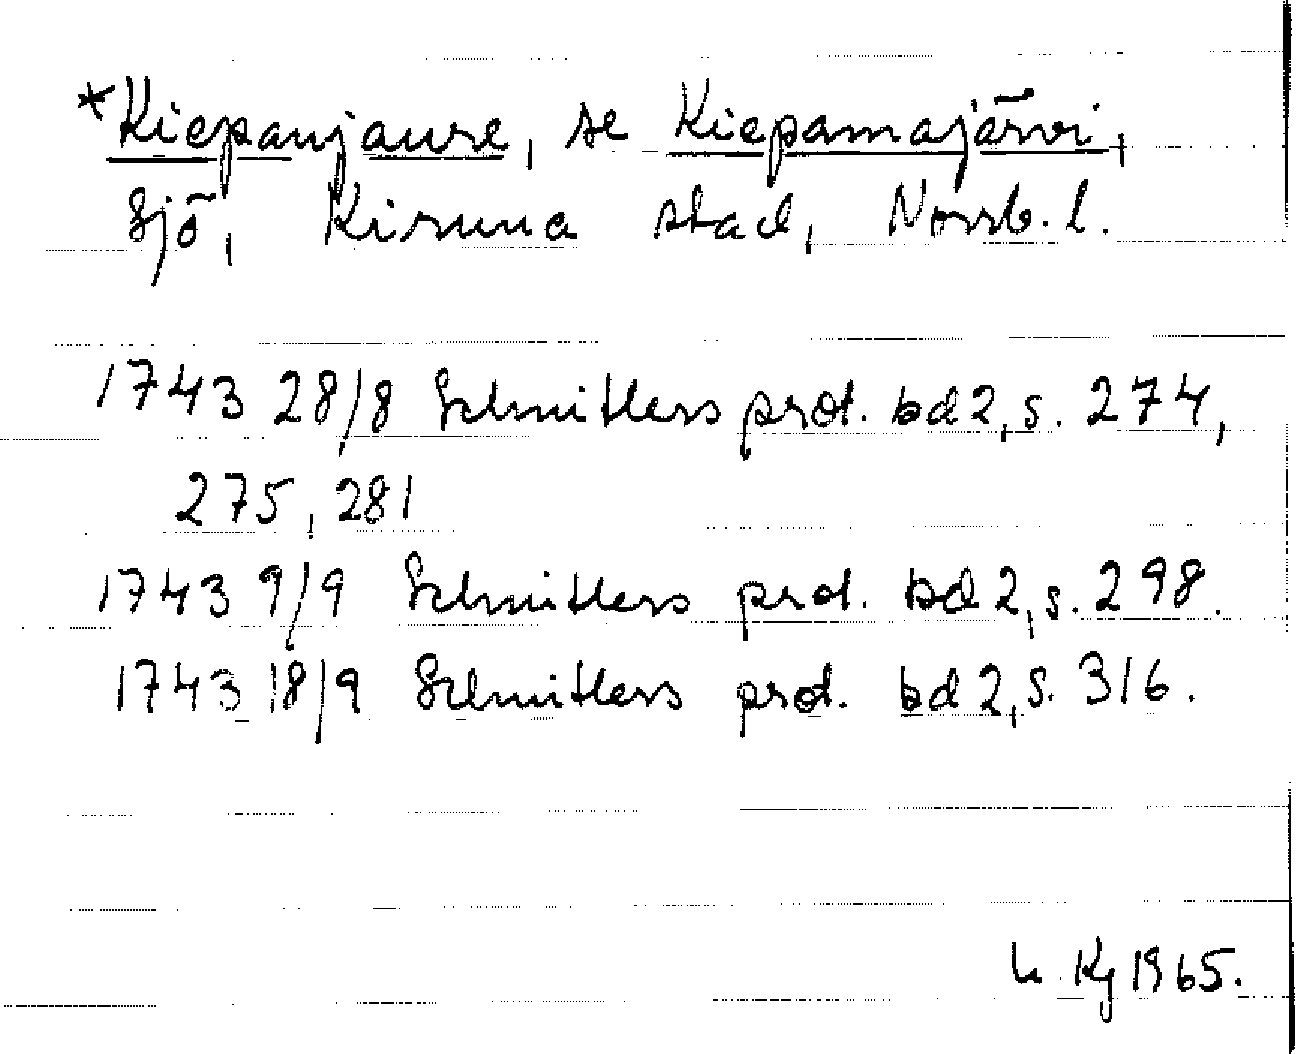 *Kiepanjaure, se Kiepamajärvi,
sjö, Kiruna stad, Norrb. l.
1743 28/8 Schnitlers prot. bd 2, s. 274,
275, 281
1743 9/9 Schnitlers prot. bd 2, s. 298.
1743 18/9 Schnitlers prot. bd 2, s. 316.
Kg 1965.